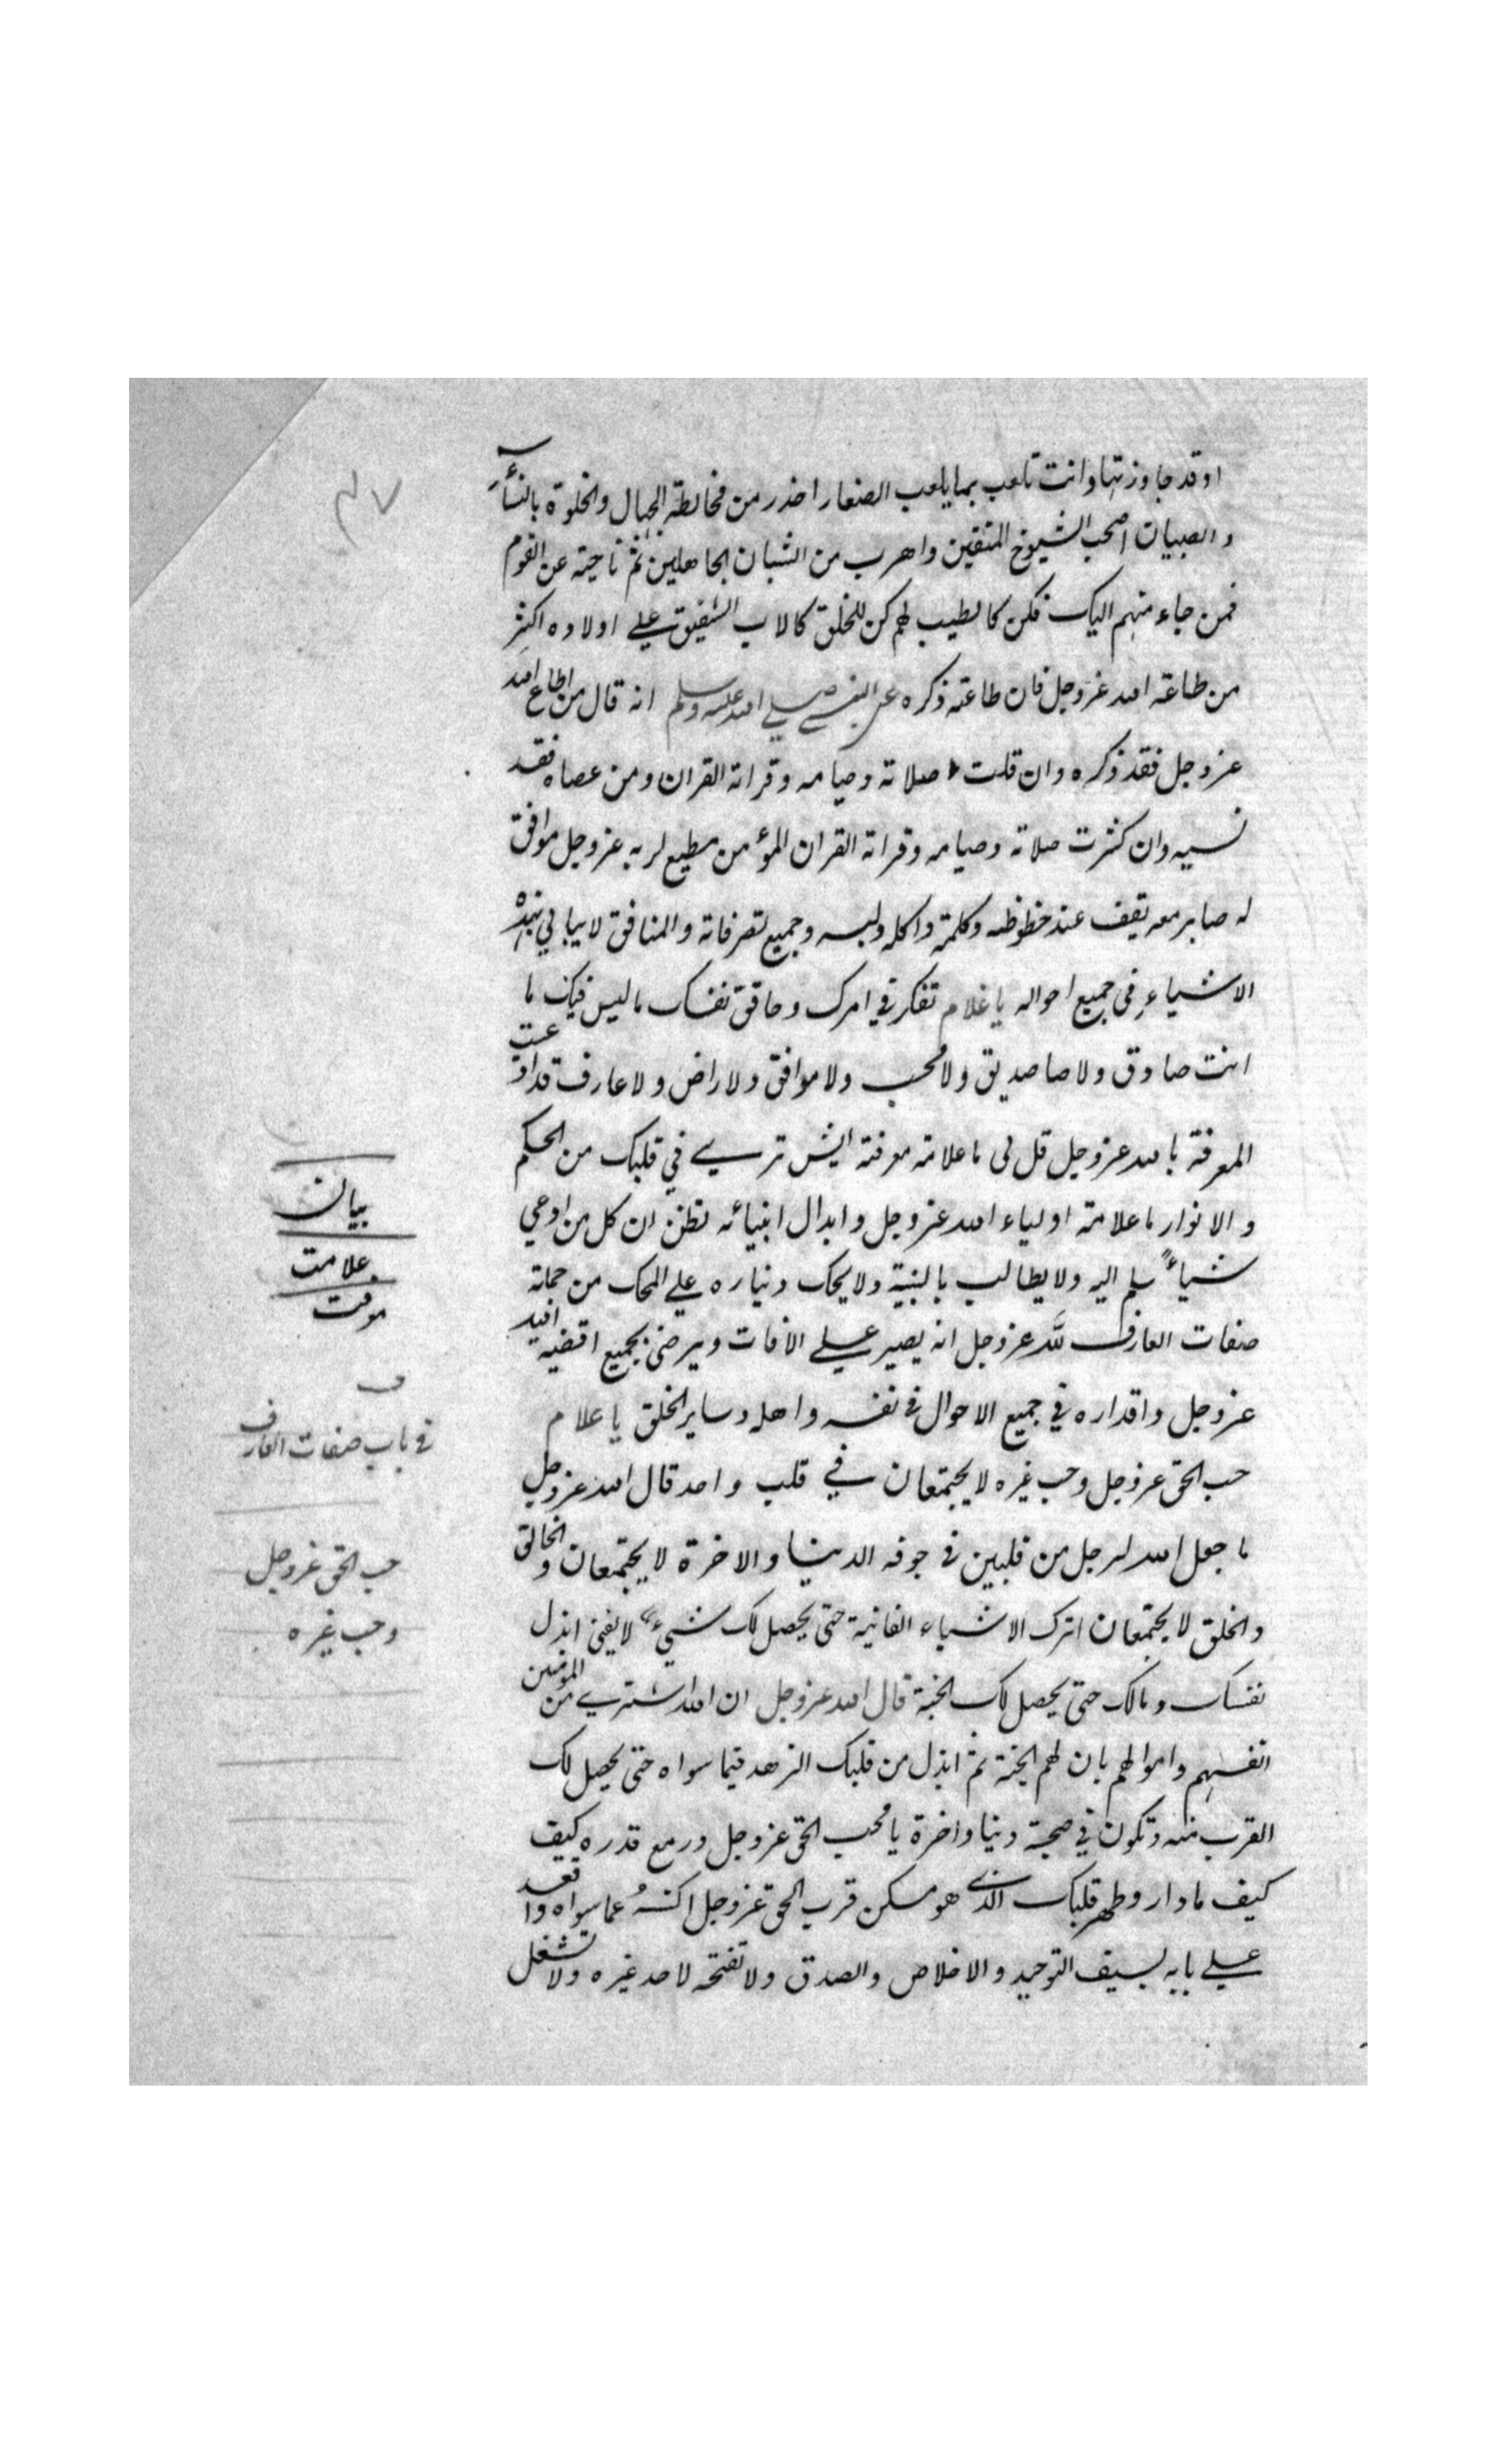 ٤٧
او قد جاوزتها وانت تلعب بما يلعب الصغار احذر من مخالطة الجهال والخلوة بالنسآء
والصبيان اصحب الشيوخ المتقين واهرب من الشبان الجاهلين نم ناحية عن القوم
فمن جاء منهم اليك فكن كالطبيب لهم كن للخلق كالاب الشفيق علي اولاده اكثر
من طاعة الله عزوجل فان طاعته ذكره عن النبي صلي الله عليه وسلم انه قال من اطاع الله
عزوجل فقد ذكره وان قلت صلاته وصيامه وقراته القران ومن عصاه فقد
نسيه وان كثرت صلاته وصيامه وقراته القران المؤمن مطيع لربه عزوجل موافق
له صابر معه يقف عند حظوظه وكلمته واكله ولبسه وجميع تصرفاته والمنافق لا يبالي بهذه
الاشياء في جميع احواله يا غلام تفكر في امرك وحاقق نفسك ما ليس فيك ما
انت صادق ولا صا صديق ولا محب ولا موافق ولا راض ولا عارف قد ادعيت
المعرفة بالله عزوجل قل لى ما علامة معرفته ايش تري في قلبك من الحكم
والانوار ما علامة اولياء الله عزوجل وابدال انبيائه تظن ان كل من ادعي
شياءً سلم اليه ولا يطالب بالبنية ولا يحك دنياره علي المحك من جملة
صفات العارف لله عزوجل انه يصبر علي الافات ويرضى بجميع اقضيه الله
عزوجل واقداره في جميع الاحوال في نفسه واهله وساير الخلق يا غلام
حب الحق عزوجل وحب غيره لا يجتمعان في قلب واحد قال الله عزوجل
ما جعل الله لرجل من قلبين في جوفه الدنيا والاخرة لا يجتمعان والخالق
والخلق لا يجتمعان اترك الاشياء الفانية حتى يحصل لك شيء لا يفنى ابذل
نفسك ومالك حتى يحصل لك الجنة قال الله عزوجل ان الله اشتري من المؤمنين
انفسهم واموالهم بان لهم الجنة ثم ابذل من قلبك الزهد فيما سواه حتى يحصل لك
القرب منه وتكون في صحبته دنيا واخرة يا محب الحق عزوجل ودر مع قدره كيف
كيف ما دار وطهر قلبك الذي هو مسكن قرب الحق عزوجل اكنسهُ عما سواه واقعد
علي بابه بسيف التوحيد والاخلاص والصدق ولا تفتحه لاحد غيره ولا تشغل
بيان
علامت
معرفت
ف
في باب صفات العارف
حب الحق عزوجل
وحب غيره